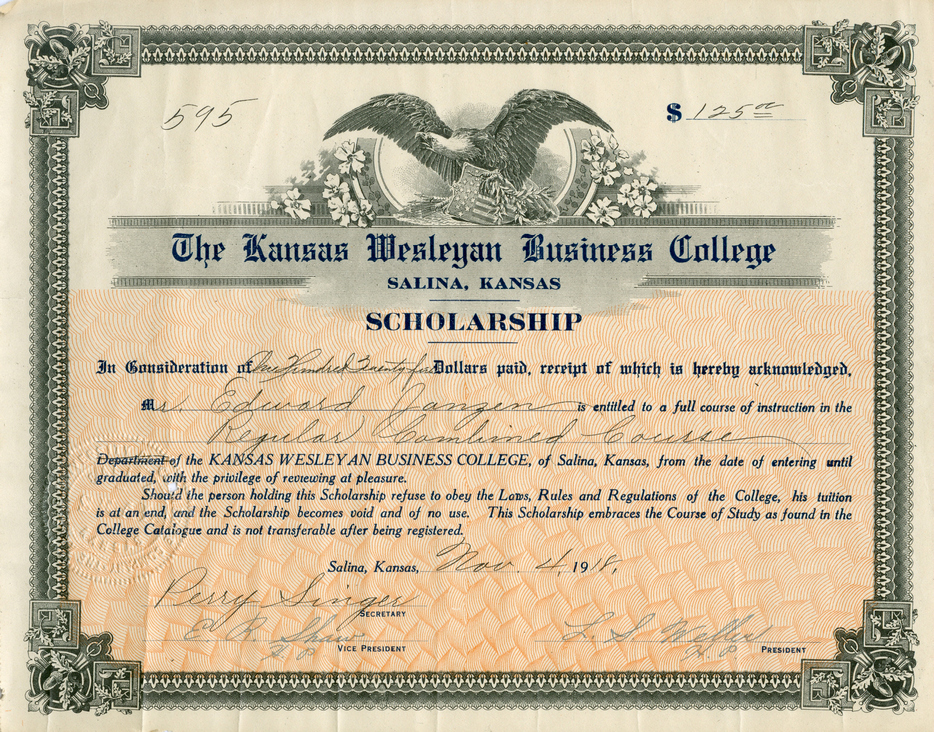 595
$ 125 00
The Kansas Wesleyan Business College
SALINA, KANSAS
SCHOLARSHIP
In Consideration of One Hundred Twenty five Dollars paid, receipt of which is hereby acknowledged,
Mr. Edward Janzen is entitled to a full course of instruction in the
Regular Combined Course
Department of the KANSAS WESLEYAN BUSINESS COLLEGE, of Salina, Kansas, from the date of entering until
graduated, with the privilege of reviewing at pleasure.
Should the person holding this Scholarship refuse to obey the Laws, Rules and Regulations of the College, his tuition
is at an end, and the Scholarship becomes void and of no use. This Scholarship embraces the Course of Study as found in the
College Catalogue and is not transferable after being registered.
Salina, Kansas, Nov. 4, 1918,
Perry Singer
SECRETARY
E. R. Shaw
VICE PRESIDENT
L. S. Weller
PRESIDENT